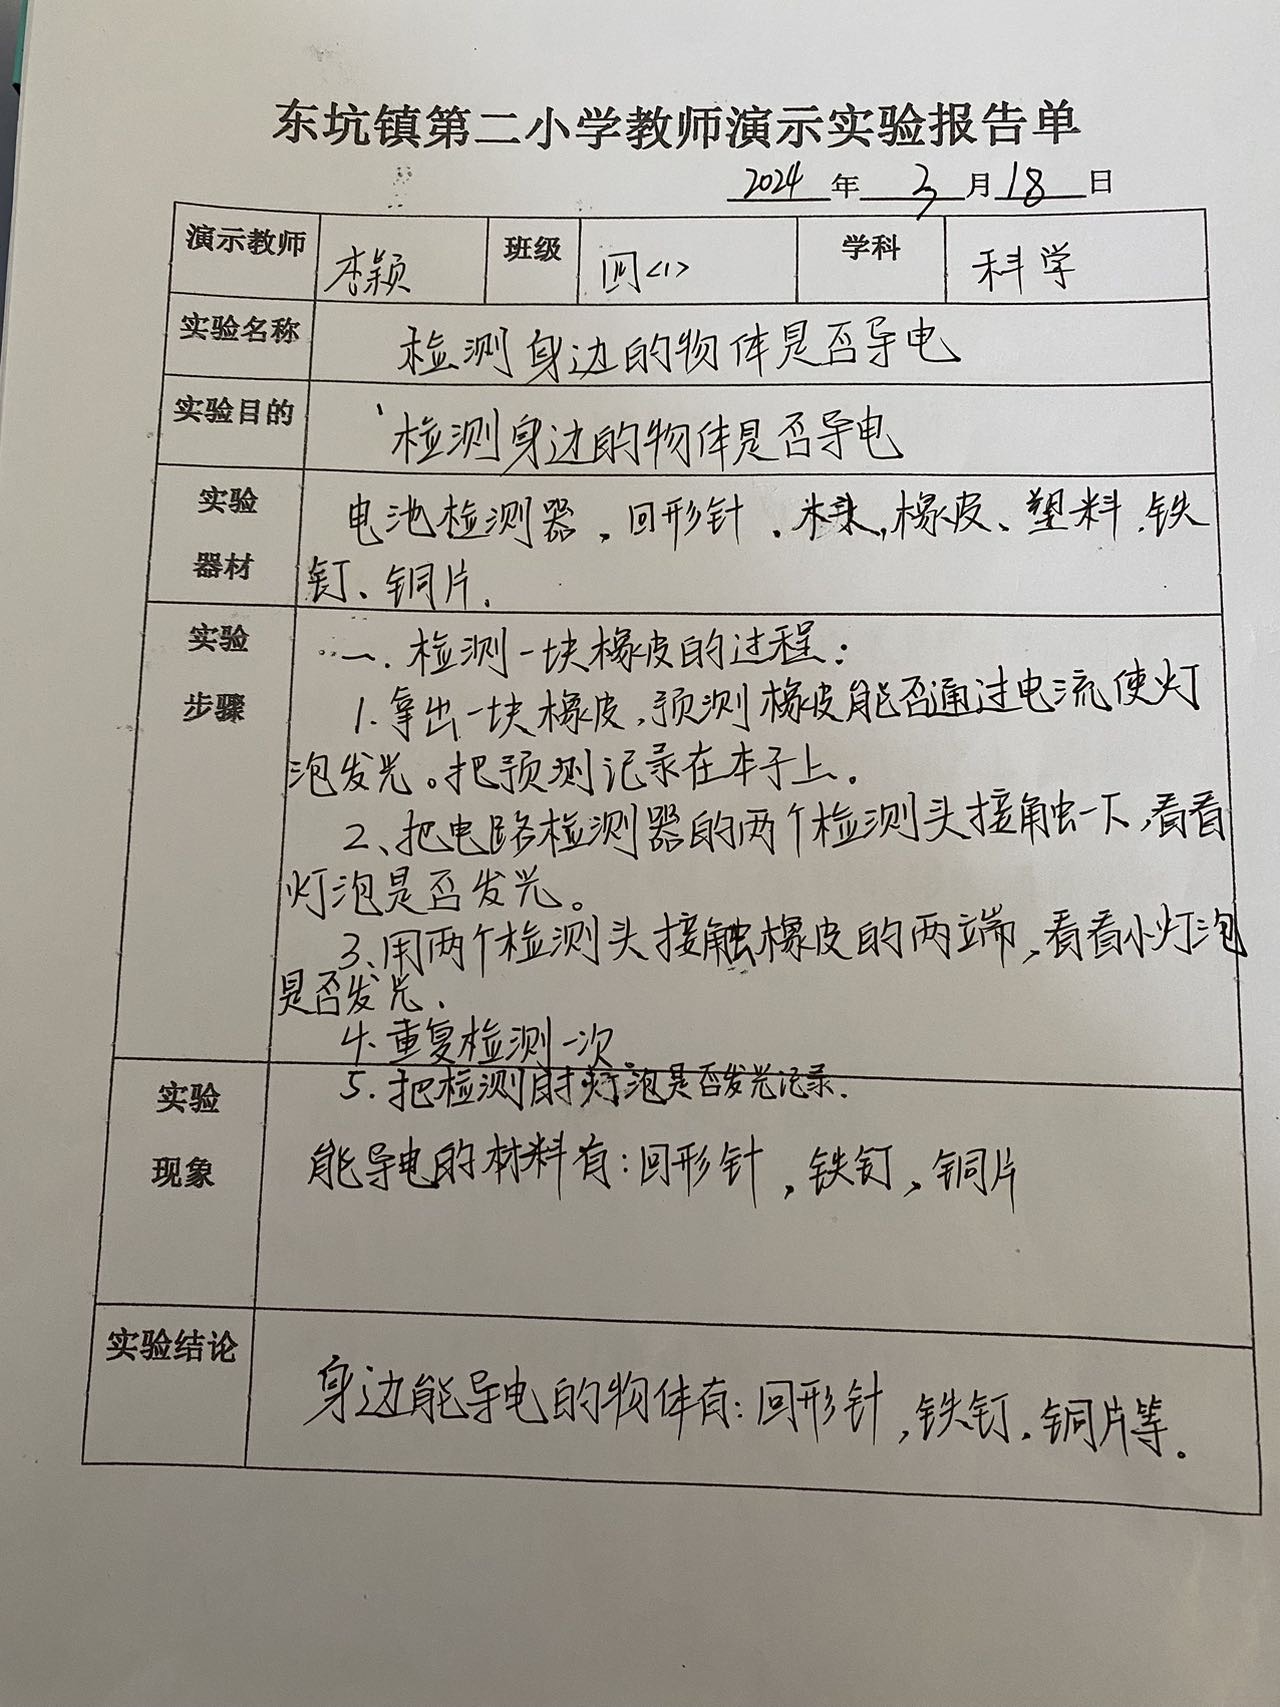 东坑镇第二小学教师演示实验报告单
2024 年 3 月 18 日
演示教师 李颖 班级 四<1> 学科 科学
实验名称 检测身边的物体是否导电
实验目的 检测身边的物体是否导电
实验 电池检测器,回形针、木块,橡皮、塑料、铁
器材 钉、铜片.
实验 一.检测一块橡皮的过程:
步骤 1.拿出一块橡皮,预测橡皮能否通过电流使灯
泡发光。把预测记录在本子上.
2、把电路检测器的两个检测头接触一下,看看
灯泡是否发光。
3、用两个检测头接触橡皮的两端,看看小灯泡
是否发光.
4.重复检测一次.
5.把检测时灯泡是否发光记录.
实验
现象 能导电的材料有:回形针,铁钉,铜片
实验结论 身边能导电的物体有:回形针,铁钉,铜片等.